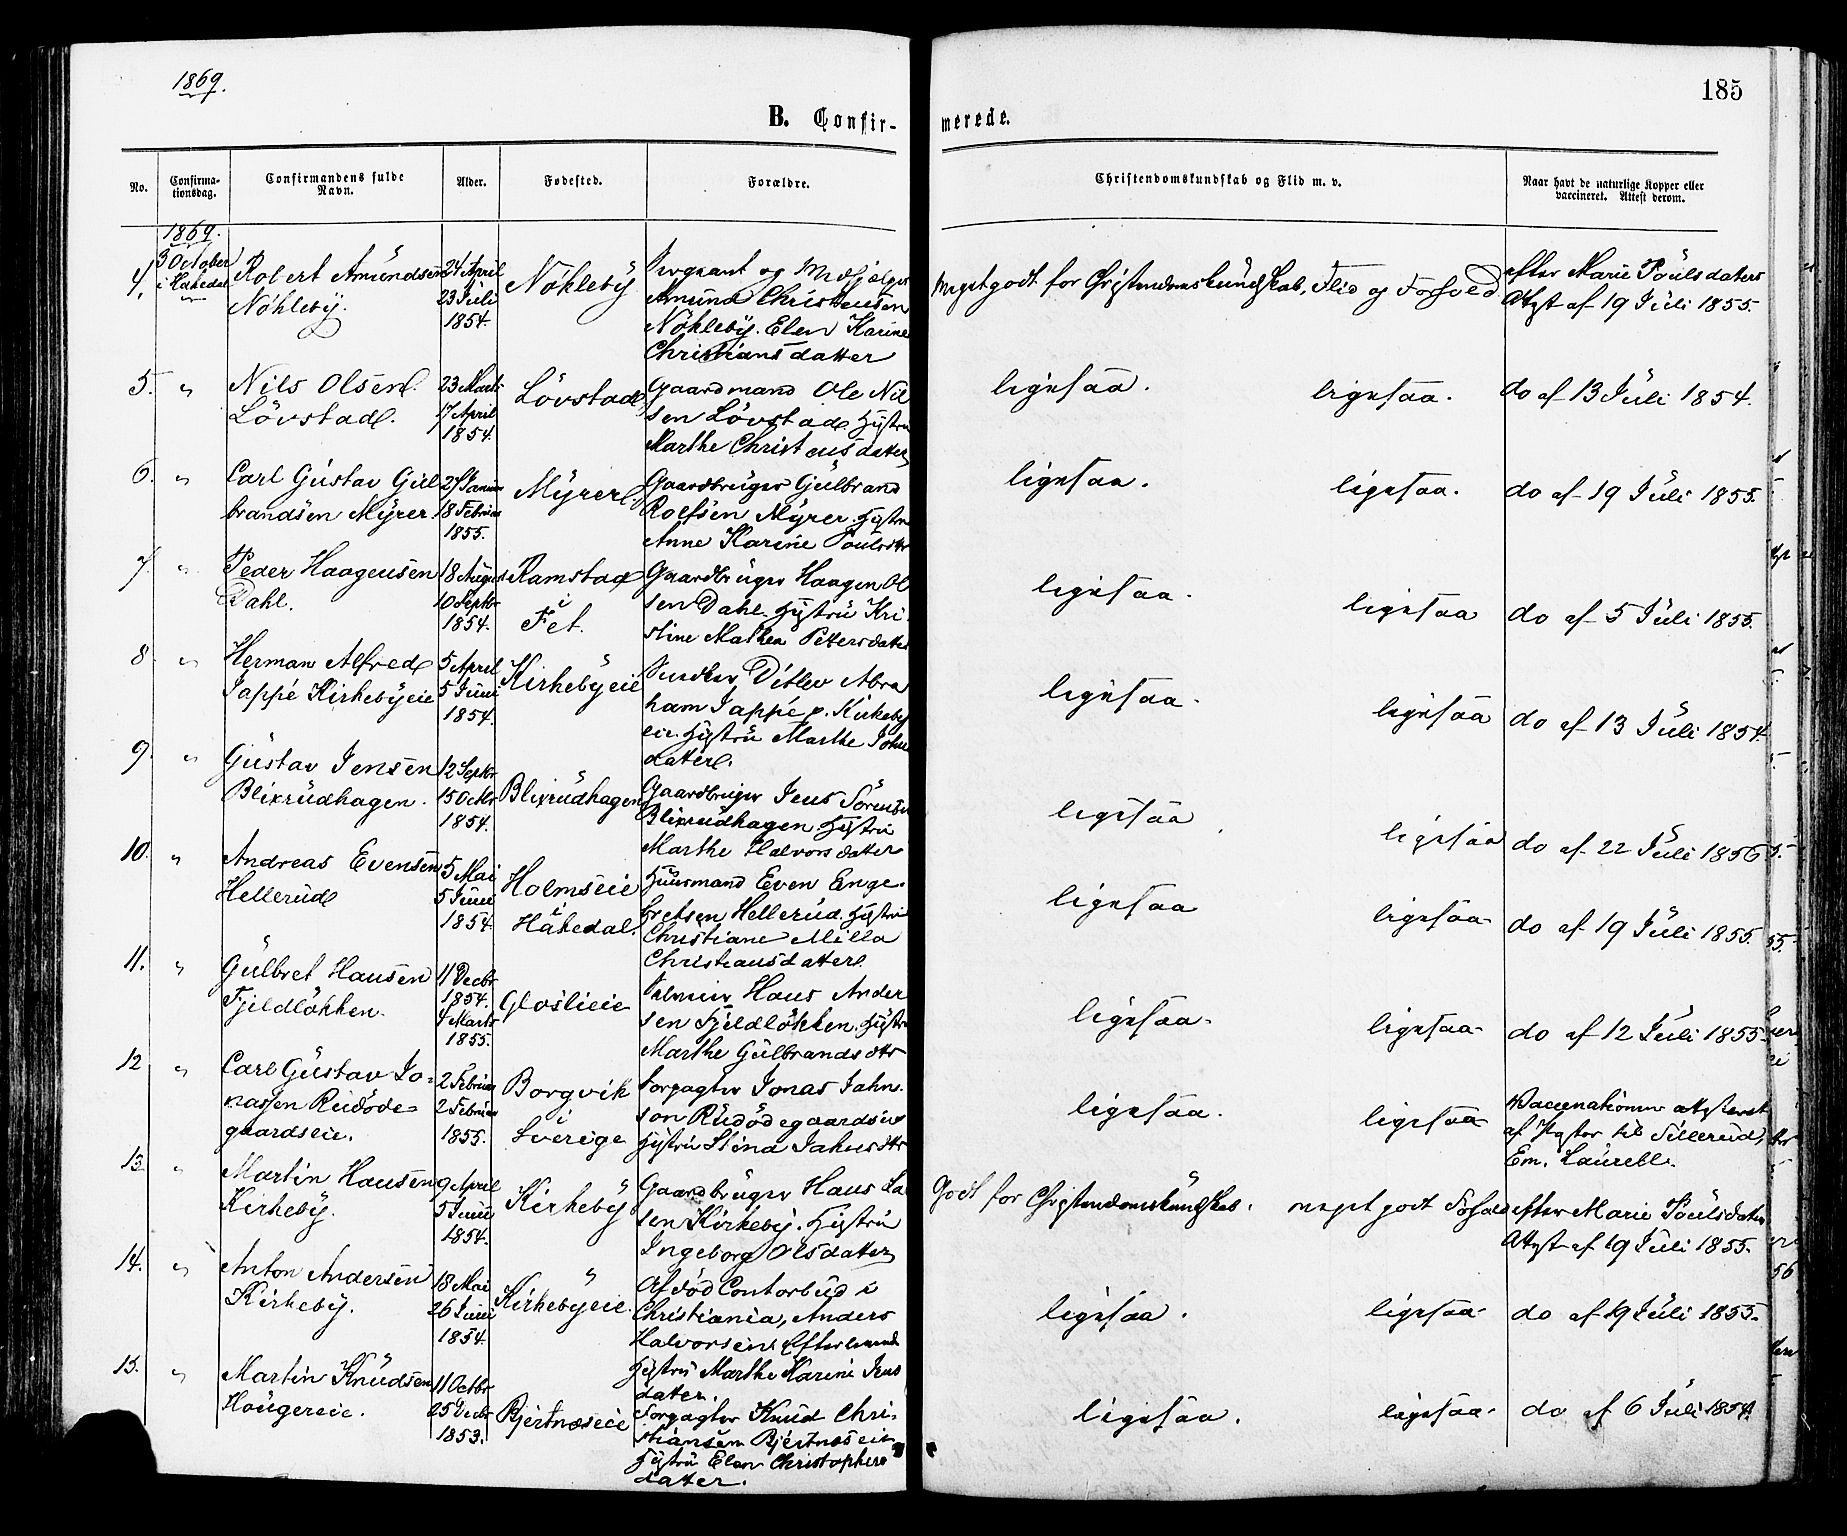 1869.
185
B. Confir-
merede.
No.
Confirma-
tionsdag.
Confirmandens fulde
Navn.
Alder.
Fødested.
Forældre.
Christendomskundskab og Flid m. v.
Naar havt de naturlige Kopper eller
vaccineret. Attest derom.
1869.
3 October
i Hakedal
4.
Robert Amundsen
Nökleby.
24 April
23 Juli
1854.
Nökleby
Sergeant og
Amund Christensen
Nökleby. Elen Karine
Christiansdatter
Meget godt for Christendomskundskab, Flid og Forhold
efter Marie Poulsdaters
Attest af 19 Juli 1855.
5. "
Nils Olsen
Lövstad.
23 Marts
17 April
1854.
Lövstad
Gaardmand Ole Nil
sen Lövstad Hustru
Marthe Christensdatter
ligesaa.
ligesaa.
do af 13 Juli 1854.
6. "
Carl Gustav Gul
brandsen Myrer.
27 Januar
18 Februar
1855.
Myrer
Gaardbruger Gulbrand
Rolfsen Myrer. Hustru
Anne Karine Poulsdtr
ligesaa.
ligesaa.
do af 19 Juli 1855.
7. "
Peder Haagensen
Dahl.
18 August
10 Septbr
1854.
Ramstad
i
Fet.
Gaardbruger Haagen Ol
sen Dahl. Hustru Kri
stine Mathea Pettersdatter
ligesaa.
ligesaa
do af 5 Juli 1855.
8. "
Herman Alfred
Jappe Kirkebyeie
5 April
5 Juni
1854.
Kirkebyeie
Snedker Ditlev Abra
ham Jappe p. Kirkeby
eie. Hustru Marthe Johns
datter.
ligesaa.
ligesaa
do af 13 Juli 1854.
9. "
Gustav Jensen
Blixrudhagen.
12 Septbr
15 Octbr
1854.
Blixrudhagen
Gaardbruger Jens Sörensen
Blixrudhagen Hustru
Marthe Halvorsdatter
ligesaa
ligesaa
do af 22 Juli 1856
10. "
Andreas Evensen
Hellerud
5 Mai
5 Juni
1854
Holmseie
i
Hakedal.
Huusmand Even Enge-
bretsen Hellerud. Hustru
Christiane Milla
Christiansdatter.
ligesaa
ligesaa
do af 19 Juli 1855.
11. "
Gulbret Hansen
Fjeldlökken.
11 Decbr
1854.
4 Marts
1855.
Gloslieie
Hans Ander
sen Fjeldlökken. Hustru
Marthe Gulbrandsdtr
ligesaa.
ligesaa
do af 12 Juli 1855
12 "
Carl Gustav Jo-
nassen Rudöde-
gaardseie.
2 Februar
2 Februar
1855.
Borgvik
i
Sverige
Forpagter Jonas Jahn-
son Rudödegaardseie
Hustru Stina Jahnsdtr
ligesaa.
ligesaa
Vaccinationen attesteret
af Pastor til Sillerud,
Em. Laurell.
13. "
Martin Hansen
Kirkeby.
9 April
5 Juni
1854.
Kirkeby
Gaardbruger Hans La
sen Kirkeby. Hustru
Ingeborg Olsdatter
Godt for Christendomskundskab.
meget godt Forhold
efter Marie Poulsdaters
Attest af 19 Juli 1855.
14. "
Anton Andersen
Kirkeby.
18 Mai
26 Juni
1854.
Kirkebyeie.
Afdöd Contorbud i
Christiania, Anders
Halvorsens Efterlevende
Hustru Marthe Karine Jens
datter.
ligesaa.
ligesaa
do af 19 Juli 1855.
15. "
Martin Knudsen
Haugereie.
11 Octbr
25 Decbr
1853.
Bjertnæseie
Forpagter Knud Chri-
stiansen Bjertnæseie
Hustru Elen Christophers
datter.
ligesaa.
ligesaa.
do af 6 Juli 1854.